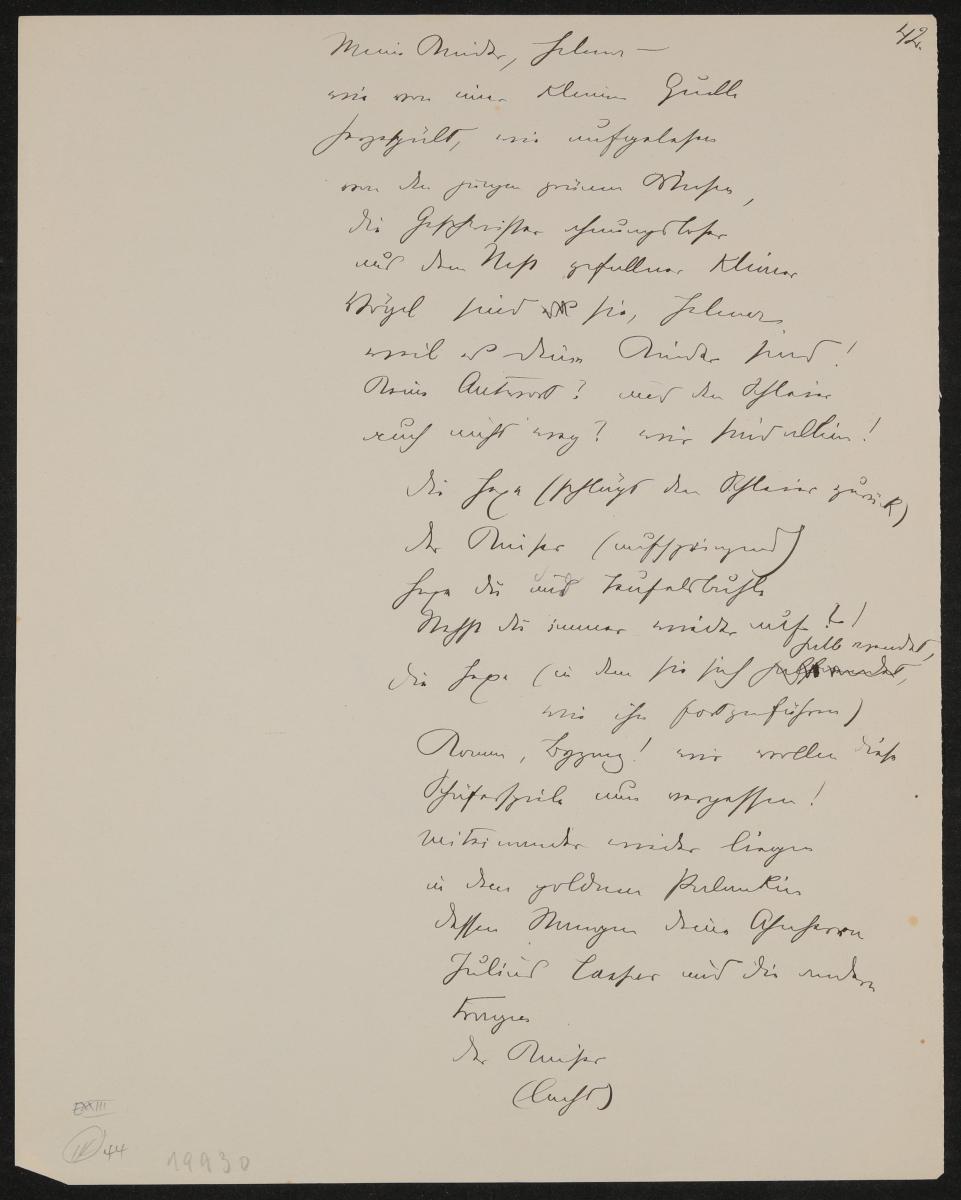 42.
Meine Kinder, Helene —
wie von einer kleinen Quelle
hergespült, wie aufgelesen
von den jungen grünen Wiesen,
die Geschwister ahnungsloser
aus dem Nest gefallner kleiner
Vögel sind sie, Helene
weil es deine Kinder sind!
Keine Antwort? und den Schleier
auch nicht weg? wir sind allein!
die Hexe (schlägt den Schleier zurück)
der Kaiser (aufspringend)
Hexe du und Teufelsbuhle
stehst du immer wieder auf?!
die Hexe (in dem sie sich halb wendet,
wie ihn fortzuführen)
Komm, Byzanz! wir wollen diese
Schäferspiele nun vergessen!
Miteinander wieder liegen
in dem goldnen Palankin
dessen Stangen deine Ahnherrn
Julius Caesar und die andern
tragen
der Kaiser
(lacht)
XXIII
44
19930